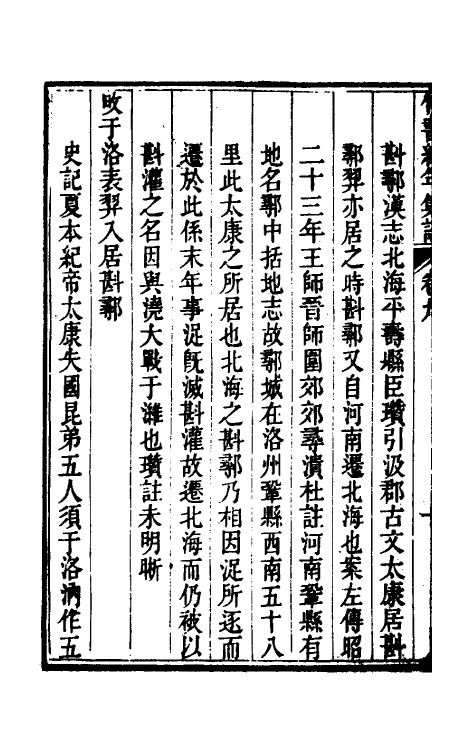 竹書紀年集證 卷九
斟鄩漢志北海平壽縣臣瓚引汲郡古文太康居斟
鄩羿亦居之時斟鄩又自河南遷北海也案左傳昭
二十三年王師晉師圍郊郊鄩潰杜註河南鞏縣有
地名鄩中括地志故鄩城在洛州鞏縣西南五十八
里此太康之所居也北海之斟鄩乃相因浞所逐而
遷於此係末年事浞旣滅斟灌故遷北海而仍被以
斟灌之名因與澆大戰于濰也瓚註未明晰
畋于洛表羿入居斟鄩
史記夏本紀帝太康失國昆弟五人須于洛汭作五